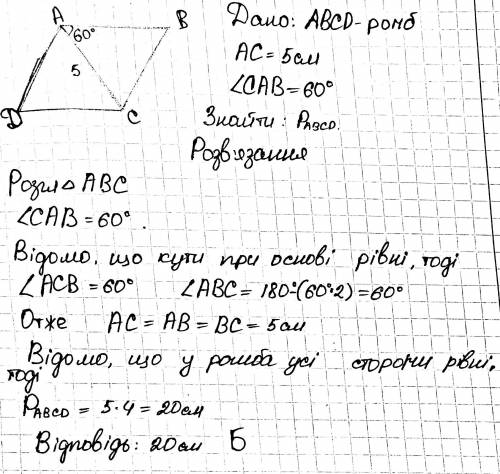 A B
60°
5
D C
Дано: ABCD - ромб
AC = 5 см
∠CAB = 60°
Знайти: P ABCD.
Розв'язання
Розгл △ ABC
∠CAB = 60°.
Відомо, що кути при основі рівні, тоді
∠ACB = 60° ∠ABC = 180°-(60°·2) = 60°
Отже AC = AB = BC = 5 см
Відомо, що у ромба усі сторони рівні,
тоді
P ABCD = 5·4 = 20 см
Відповідь: 20 см Б